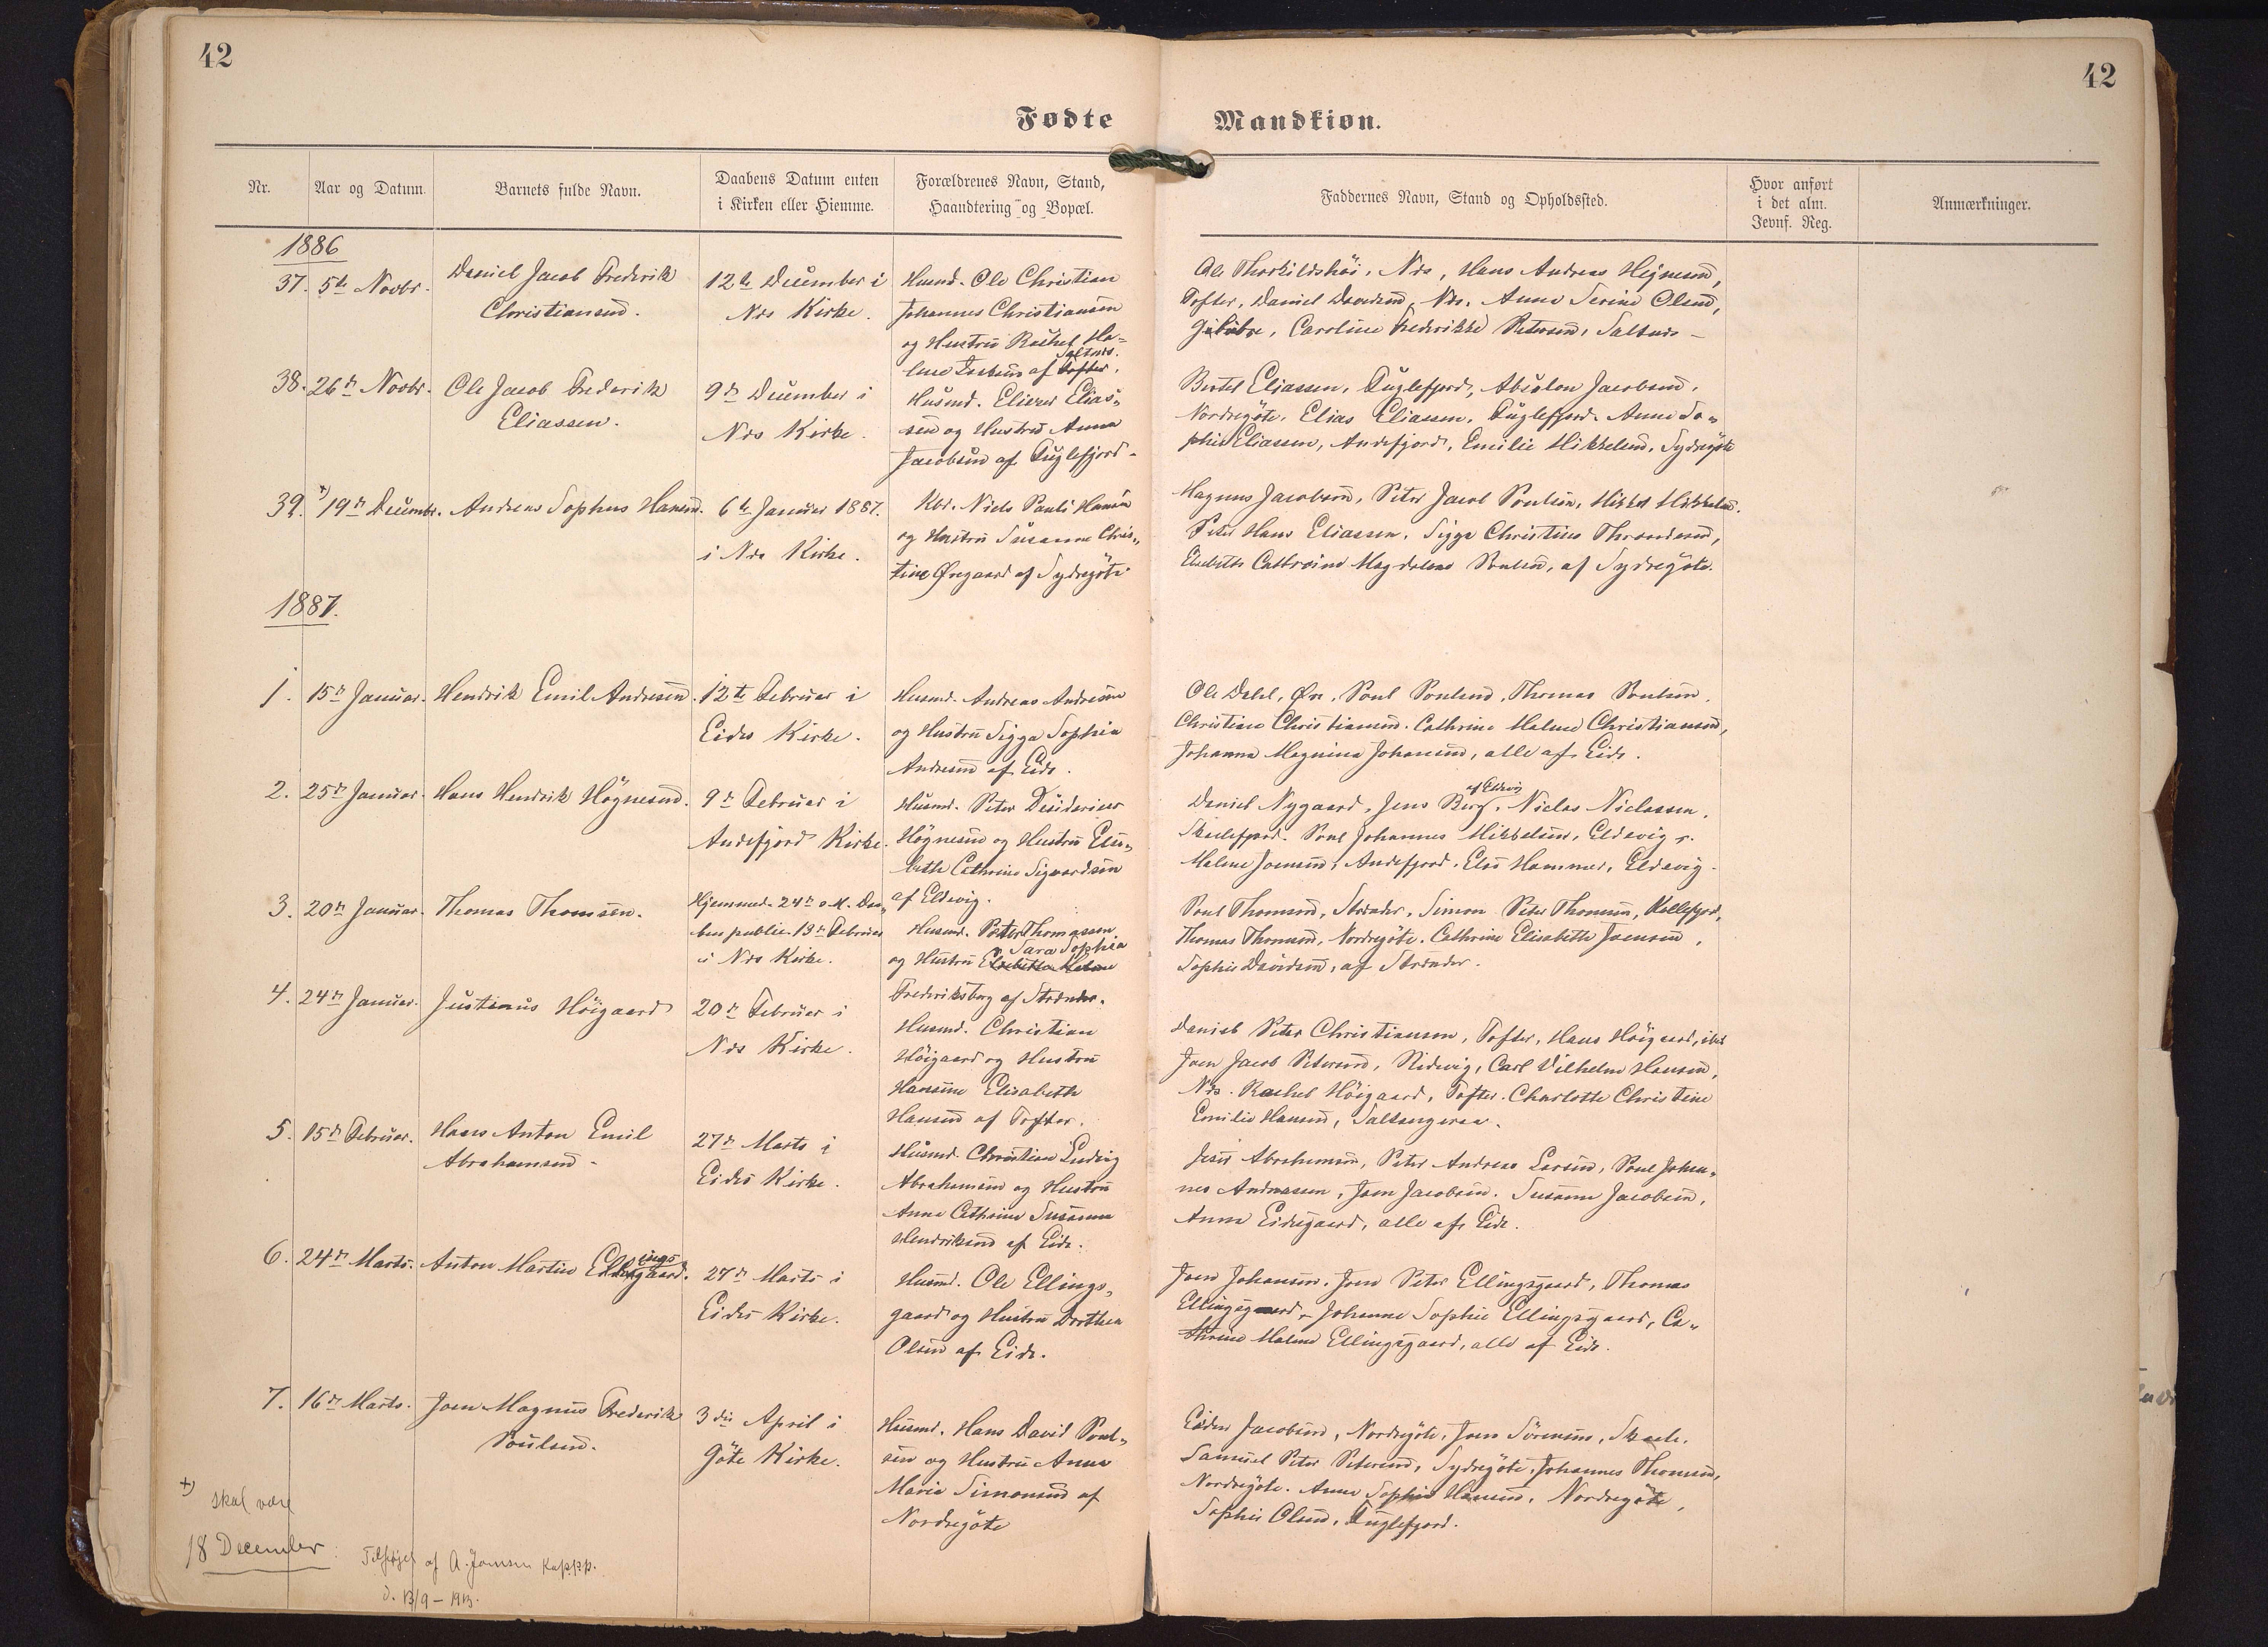 42
42
Fødte
Mandkiøn.
Nr.
Aar og Datum.
Barnets fulde Navn.
Daabens Datum enten
i Kirken eller Hiemme.
Forældrenes Navn, Stand,
Haandtering og Bopæl.
Faddernes Navn, Stand og Opholdssted.
Hvor anført
i det alm.
Jevnf. Reg.
Anmærkninger.
1886
37. 5te Novbr.
Daniel Jacob Frederik
Christiansen.
12te December i
Nes Kirke.
Husmd. Ole Christian
Johannes Christiansen
og Hustru Rachel Ha=
Saltnes.
lene af Tofter.
Ole Thorkildshöi, Nes, Hans Andreas Høgnesen,
Tofter, Daniel Davidsen, Nes. Anne Serine Olsen,
Caroline Frederikke Petersen, Saltnes –
38. 26de Novbr.
Ole Jacob Frederik
Eliassen.
9de December i
Nes Kirke.
Husmd. Eliezer Elias„
sen og Hustru Anna
Jacobsen af Fuglefjord –
Bertel Eliassen, Fuglefjord, Absalon Jacobsen,
Nordregöte, Elias Eliassen, Fuglefjord. Anne So„
phie Eliassen, Andefjord, Emilie Mikkelsen, Sydregöte
39. +) 19de Decembr.
Andreas Sophus Hansen.
6te Januar 1887.
i Nes Kirke.
Kbr. Niels Pauli Hansen
og Hustru Susanne Chris„
tine Øregaard af Sydregöte
Magnus Jacobsen, Peter Jacob Poulsen, Mikkel Mikkelsen.
Peter Hans Eliassen. Sigga Christine Throndesen,
Elsebeth Cathrine Magdalene Poulsen, af Sydregöte.
1887.
1. 15de Januar.
Hendrik Emil Andresen.
12te Februar i
Eides Kirke.
Husmd. Andreas Andresen
og Hustru Sigga Sophia
Andresen af Eide.
Ole Debel, Øre, Poul Poulsen, Thomas Poulsen.
Christine Christiansen. Cathrine Malene Christiansen,
Johanna Magnina Johansen, alle af Eide.
2. 25de Januar.
Hans Hendrik Högnesen.
9de Februar i
Andefjord Kirke.
Husmd. Peter Desiderius
Högnesen og Hustru Else„
beth Cathrine Sigvardsen
af Eldevig.
af Eldevig
Daniel Nygaard, Jens Berg, Niclas Niclassen.
Skaalefjord. Poul Johannes Mikkelsen, Eldevig
Malene Joensen, Andefjord, Else Hammer, Eldevig –
3. 20de Januar.
Thomas Thomsen.
Hjemmed. 24de s. M. Daa„
ben public. 13de Februar
i Nes Kirke.
Husmd. Peter Thomassen
Sara Sophia
og Hustru Elsebetha Malene
Frederiksberg af Strender.
Poul Thomsen, Strender, Simon Peter Thomsen, Kollefjord,
Thomas Thomsen, Nordregöte. Cathrine Elisabeth Joensen,
Sophie Davidsen, af Strender.
4. 24de Januar.
Justinus Höigaard
20de Februar i
Nes Kirke.
Husmd. Christian
Höigaard og Hustru
Hansine Elisabeth
Hansen af Tofter.
Daniel Peter Christiansen, Tofter, Hans Höigaard, ibd
Joen Jacob Petersen, Nidevig, Carl Vilhelm Hansen,
Nes. Rachel Höigaard, Tofter. Charlotte Christine
Emilie Hansen, Saltangeraa.
5. 15de Februar.
Hans Anton Emil
Abrahamsen –
27de Marts i
Eides Kirke.
Husmd. Christian Ludvig
Abrahamsen og Hustru
Anne Cathrine Susanne
Hendriksen af Eide.
Abrahamsen, Peter Andreas Larsen, Poul Johan„
nes Andreassen, Joen Jacobsen. Susanne Jacobsen,
Anne Eidesgaard, alle af Eide.
6. 24de Marts.
Anton Martin Ellingsgaard.
27de Marts i
Eides Kirke.
Husmd. Ole Ellings„
gaard og Hustru Dorthea
Olsen af Eide.
Joen Johansen, Joen Peter Ellingsgaard, Thomas
Ellingsgaard, Johanne Sophie Ellingsgaard, Ca„
thrine Malene Ellingsgaard, alle af Eide.
7. 16de Marts.
Joen Magnus Frederik
Poulsen.
3die April i
Göte Kirke.
Husmd. Hans David Poul„
sen og Hustru Anna
Maria Simonsen af
Nordregöte
Jacobsen, Nordregöte, Joen Sörensen, Skaale.
Samuel Peter Petersen, Sydregöte, Johannes Thomsen,
Nordregöte. Anne Sophie Hansen, Nordregöte,
Sophie Olsen, Fuglefjord.
+) skal være
18 December.
Tilføjet af A. Joensen Kappp.
d. 13/9 – 1913.